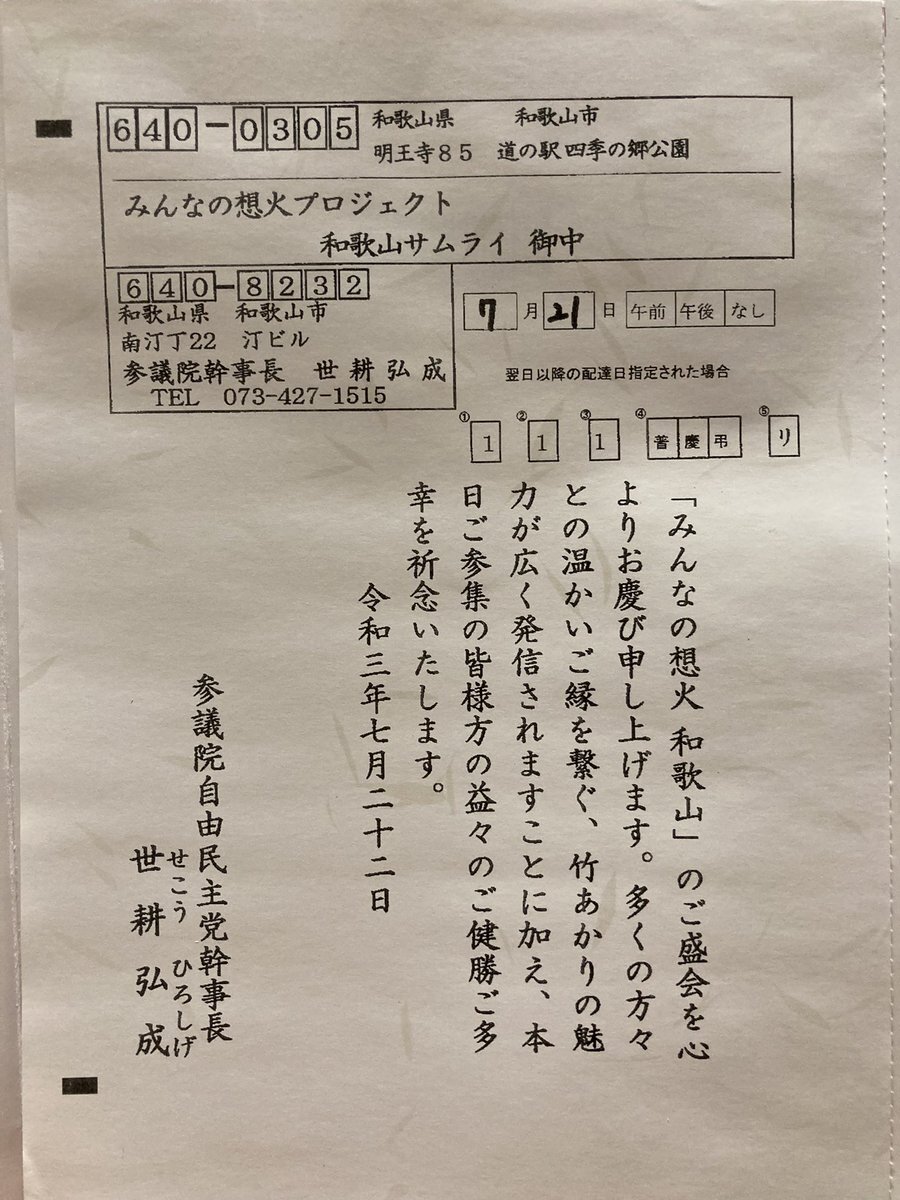 640-0305
和歌山県 和歌山市
明王寺85 道の駅四季の郷公園
みんなの想火プロジェクト
和歌山サムライ 御中
640-8232
和歌山県 和歌山市
南汀丁22 汀ビル
参議院幹事長 世耕弘成
TEL 073-427-1515
7月21日 午前 午後 なし
翌日以降の配達日指定された場合
①1 ②1 ③1 ④普慶弔 ⑤リ
「みんなの想火 和歌山」のご盛会を心
よりお慶び申し上げます。多くの方々
との温かいご縁を繋ぐ、竹あかりの魅
力が広く発信されますことに加え、本
日ご参集の皆様方の益々のご健勝ご多
幸を祈念いたします。
令和三年七月二十二日
参議院自由民主党幹事長
せこう ひろしげ
世耕弘成